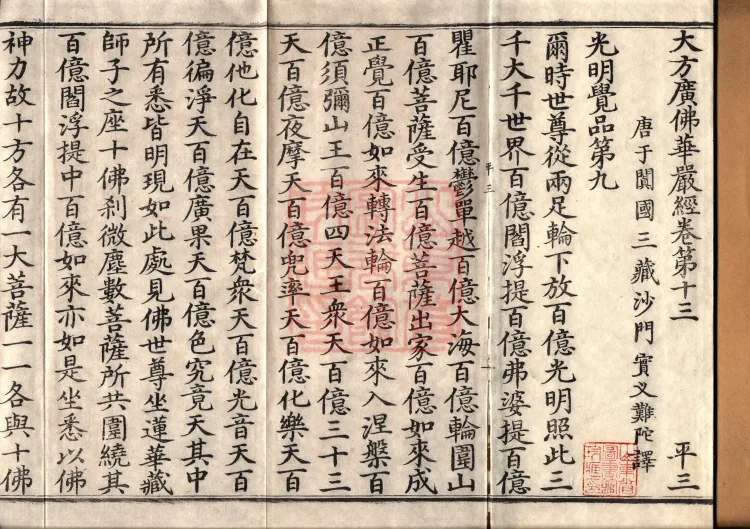 大方廣佛華嚴經卷第十三　平三
唐于闐國三藏沙門實叉難陀譯
光明覺品第九
爾時世尊從兩足輪下放百億光明照此三
千大千世界百億閻浮提百億弗婆提百億
平三　一
瞿耶尼百億鬱單越百億大海百億輪圍山
百億菩薩受生百億菩薩出家百億如來成
正覺百億如來轉法輪百億如來入涅槃百
億須彌山王百億四天王衆天百億三十三
天百億夜摩天百億兜率天百億化樂天百
億他化自在天百億梵衆天百億光音天百
億徧淨天百億廣果天百億色究竟天其中
所有悉皆明現如此處見佛世尊坐蓮華藏
師子之座十佛刹微塵數菩薩所共圍繞其
百億閻浮提中百億如來亦如是坐悉以佛
神力故十方各有一大菩薩一一各與十佛